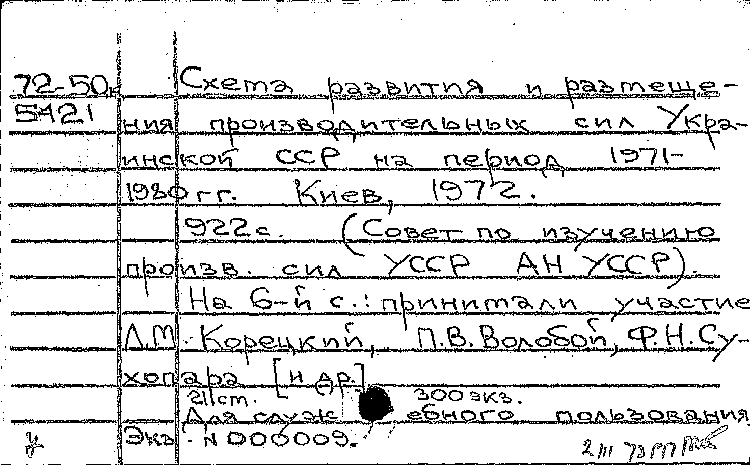 72-50к Схема развития и размеще-
5421 ния производительных сил Укра-
инской ССР на период 1971-
1980 гг. Киев, 1972.
922 с. (Совет по изучению
произв. сил УССР АН УССР).
На 6-й с.: принимали участие
Л.М. Корецкий, П.В. Волобой, Ф.Н. Су-
хопара [и др.]
211 ст. 300 экз.
Для служебного пользования
Экз. N 000009.